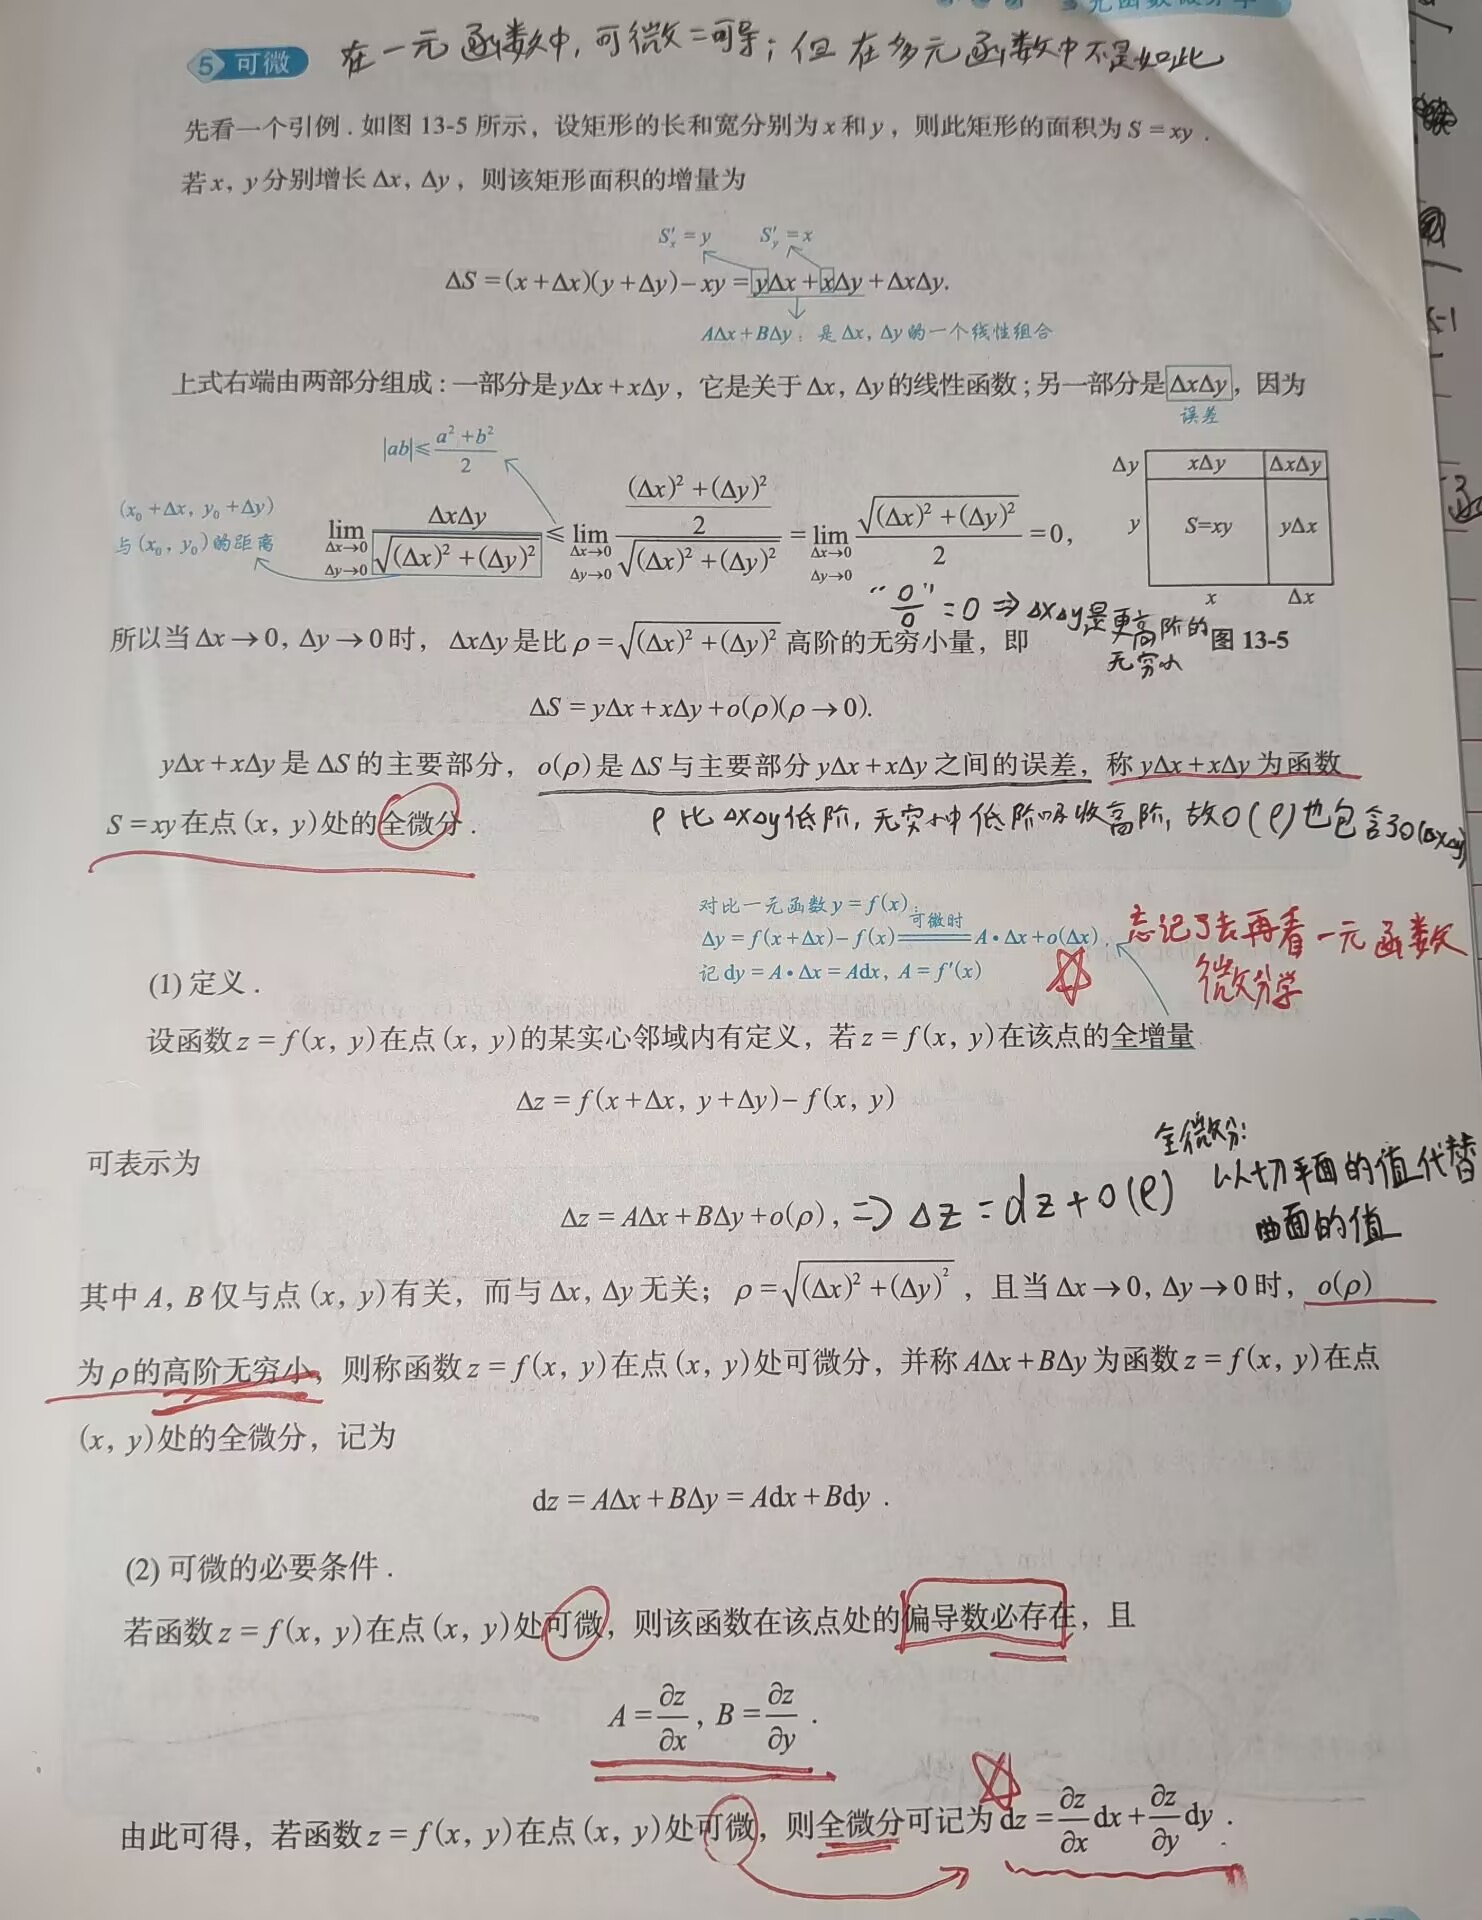 元函数微分学
5 可微 在一元函数中,可微=可导;但在多元函数中不是如此
先看一个引例.如图 13-5 所示,设矩形的长和宽分别为 x 和 y,则此矩形的面积为 S = xy .
若 x, y 分别增长 Δx, Δy,则该矩形面积的增量为
S'x = y S'y = x
ΔS = (x + Δx)(y + Δy) − xy = yΔx + xΔy + ΔxΔy.
AΔx + BΔy:是 Δx, Δy 的一个线性组合
上式右端由两部分组成:一部分是 yΔx + xΔy,它是关于 Δx, Δy 的线性函数;另一部分是 ΔxΔy,因为
误差
|ab| ≤ (a² + b²)/2
(x₀ + Δx, y₀ + Δy)
与(x₀, y₀)的距离
lim Δx→0 Δy→0 ΔxΔy/√((Δx)² + (Δy)²) ≤ lim Δx→0 Δy→0 (((Δx)² + (Δy)²)/2)/√((Δx)² + (Δy)²) = lim Δx→0 Δy→0 √((Δx)² + (Δy)²)/2 = 0,
Δy xΔy ΔxΔy
y S=xy yΔx
x Δx
图 13-5
"0/0" = 0 ⇒ ΔxΔy是更高阶的
无穷小
所以当 Δx → 0, Δy → 0 时, ΔxΔy 是比 ρ = √((Δx)² + (Δy)²) 高阶的无穷小量,即
ΔS = yΔx + xΔy + o(ρ)(ρ → 0).
yΔx + xΔy 是 ΔS 的主要部分, o(ρ) 是 ΔS 与主要部分 yΔx + xΔy 之间的误差,称 yΔx + xΔy 为函数
S = xy 在点 (x, y) 处的全微分 .
ρ 比 ΔxΔy 低阶,无穷小中低阶吸收高阶,故 o(ρ) 也包含了o(ΔxΔy)
对比一元函数 y = f(x),
Δy = f(x + Δx) − f(x) =可微时= A·Δx + o(Δx),
记 dy = A·Δx = Adx, A = f'(x)
忘记了去再看一元函数
微分学
(1) 定义 .
设函数 z = f(x, y) 在点 (x, y) 的某实心邻域内有定义,若 z = f(x, y) 在该点的全增量
Δz = f(x + Δx, y + Δy) − f(x, y)
可表示为
Δz = AΔx + BΔy + o(ρ), ⇒ Δz = dz + o(ρ)
全微分:
以切平面的值代替
曲面的值
其中 A, B 仅与点 (x, y) 有关,而与 Δx, Δy 无关; ρ = √((Δx)² + (Δy)²) ,且当 Δx → 0, Δy → 0 时, o(ρ)
为 ρ 的高阶无穷小,则称函数 z = f(x, y) 在点 (x, y) 处可微分,并称 AΔx + BΔy 为函数 z = f(x, y) 在点
(x, y) 处的全微分,记为
dz = AΔx + BΔy = Adx + Bdy .
(2) 可微的必要条件 .
若函数 z = f(x, y) 在点 (x, y) 处可微,则该函数在该点处的偏导数必存在,且
A = ∂z/∂x , B = ∂z/∂y .
由此可得,若函数 z = f(x, y) 在点 (x, y) 处可微,则全微分可记为 dz = ∂z/∂x dx + ∂z/∂y dy .